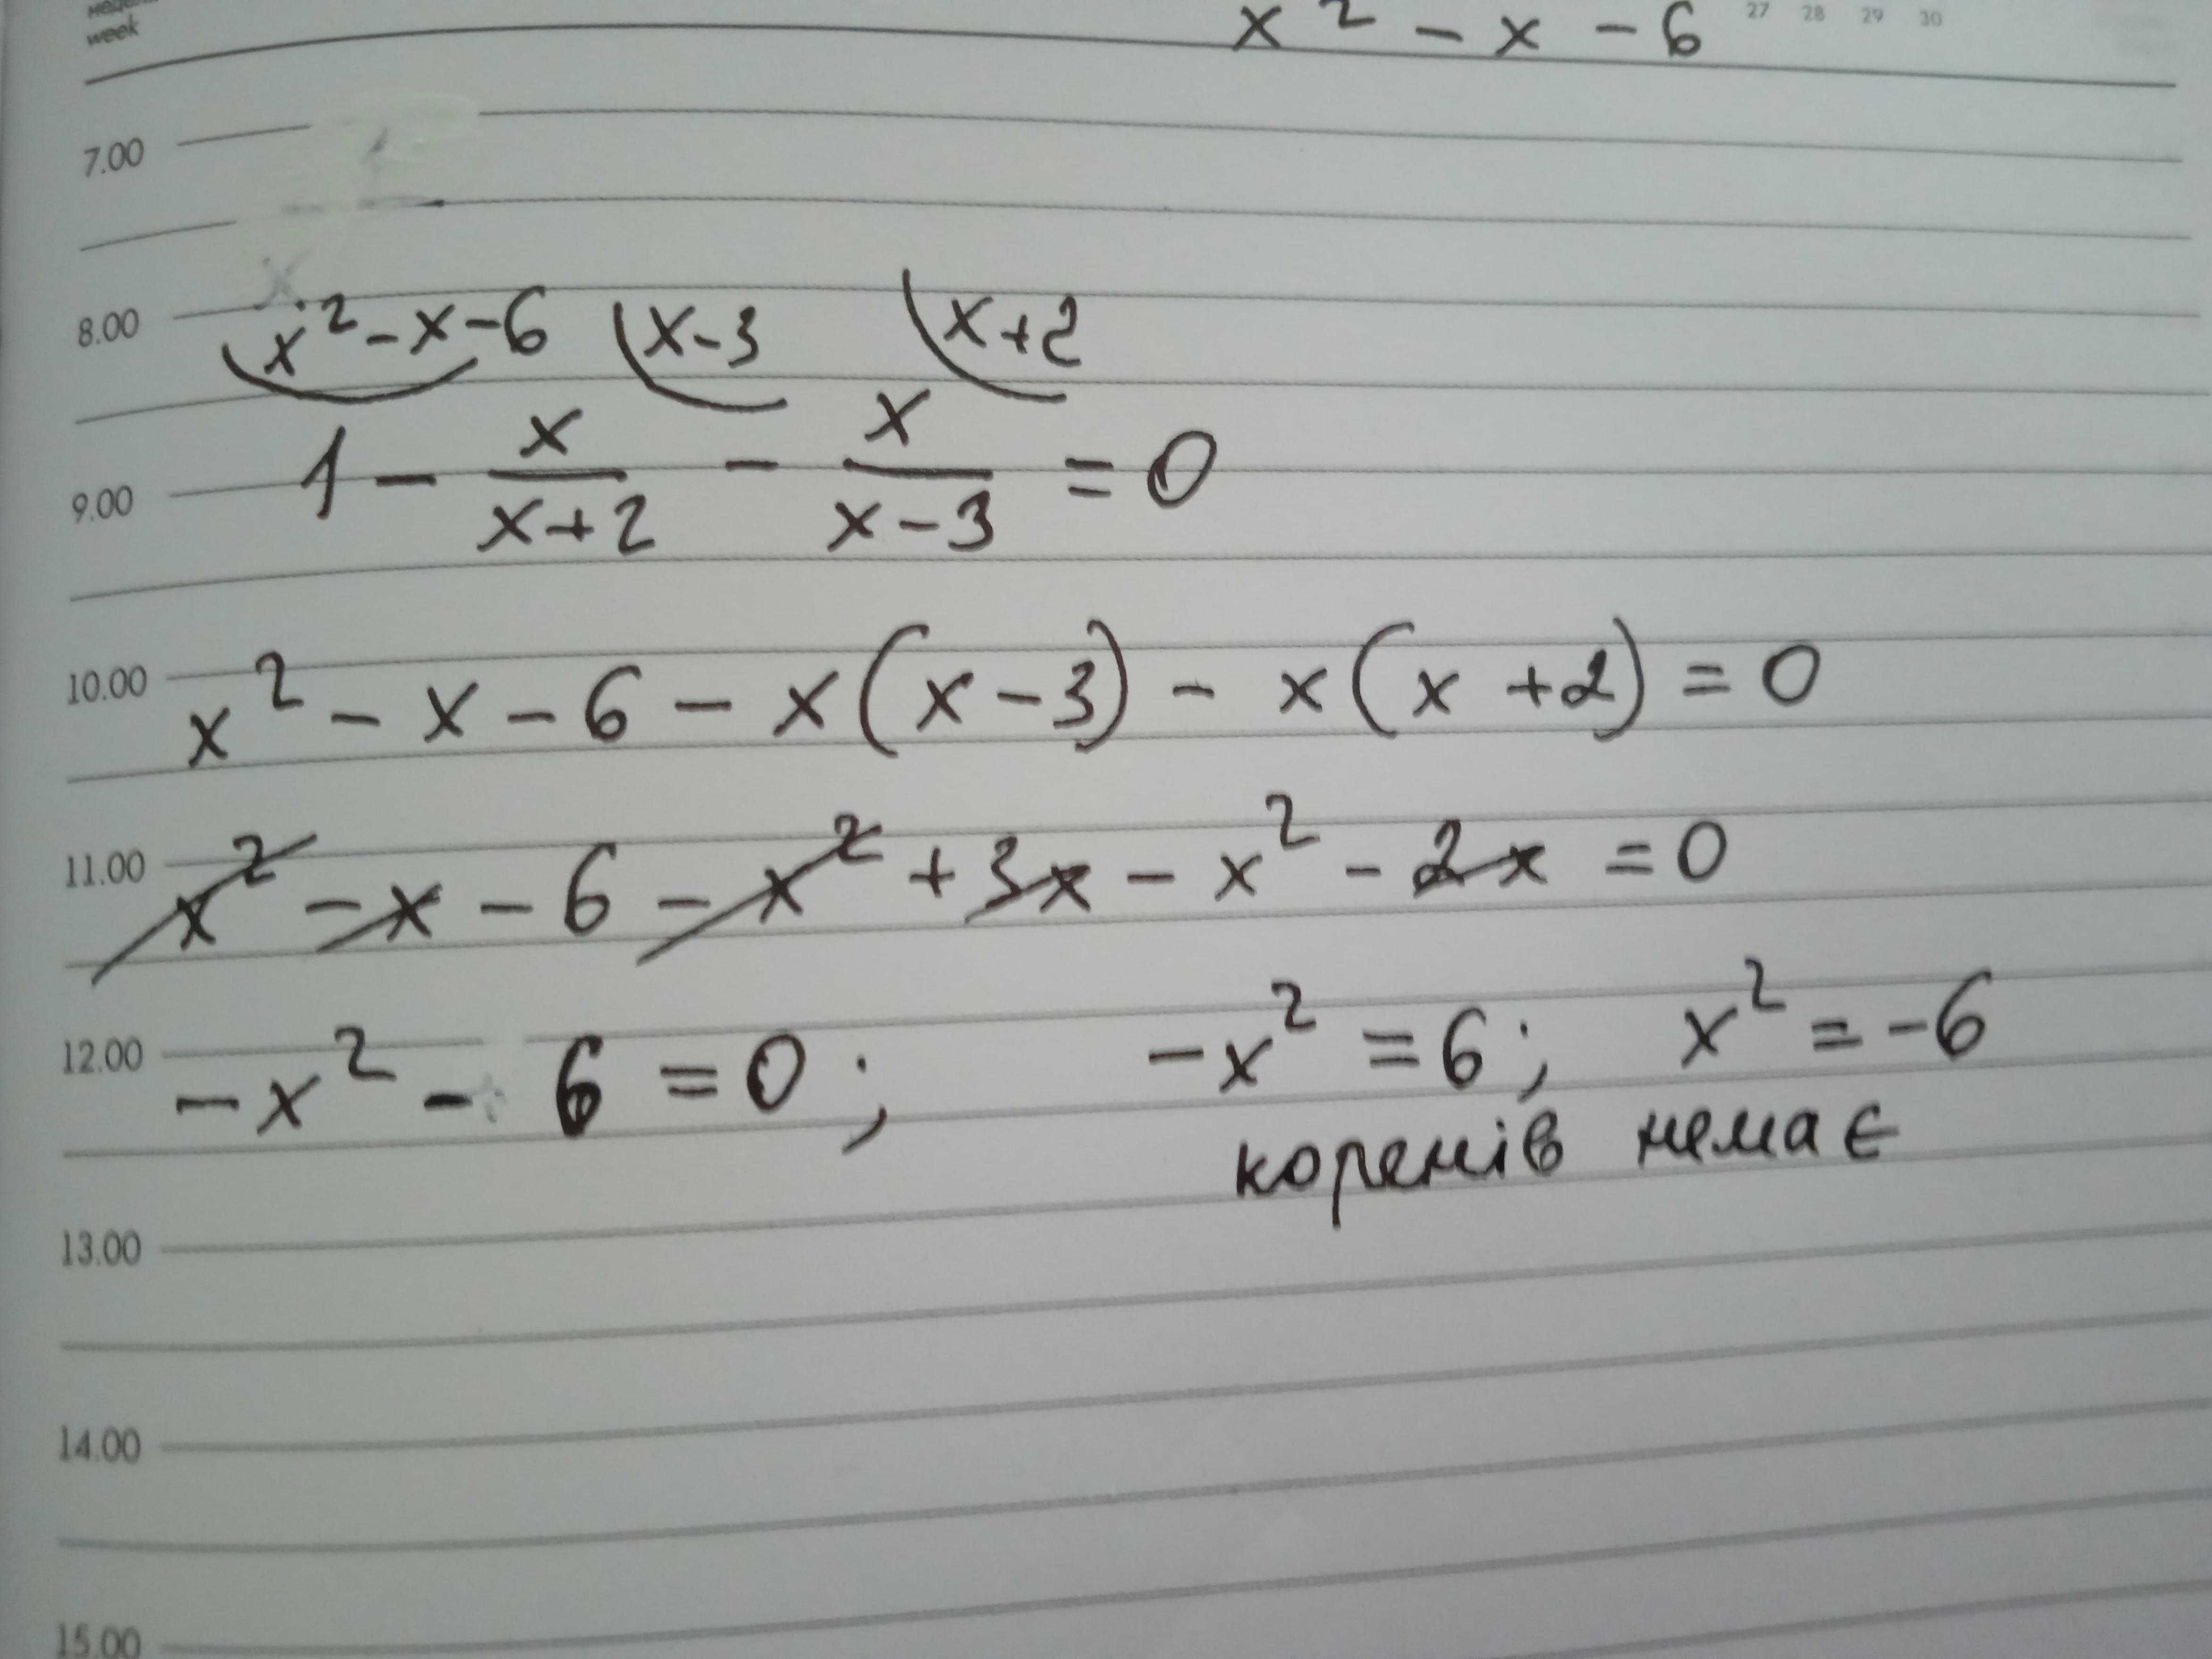 week
x² - x - 6
27 28 29 30
7.00
8.00
x² - x - 6 x - 3 x + 2
9.00
1 - x/(x+2) - x/(x-3) = 0
10.00
x² - x - 6 - x(x - 3) - x(x + 2) = 0
11.00
x² - x - 6 - x² + 3x - x² - 2x = 0
12.00
-x² - 6 = 0; -x² = 6; x² = -6
коренів немає
13.00
14.00
15.00